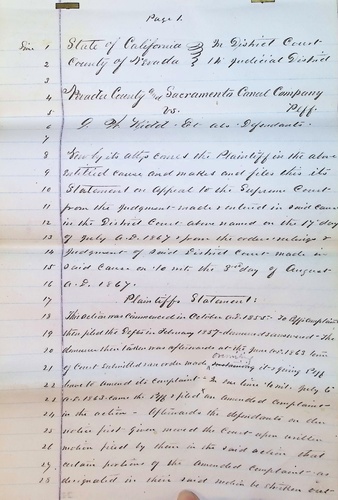 Page 1.
Line 1 State of California In District Court
2 County of Nevada 14 Judicial District
3
4 Nevada County and Sacramento Canal Company
5 vs. Plff
6 G. W. Kidd Et als Defendants.
7
8 Now by its attys comes the Plaintiff in the above
9 entitled cause and makes and files this its
10 Statement on Appeal to the Supreme Court
11 from the Judgment made & entered in said cause
12 in the District Court above named on the 17 day
13 of July A.D. 1867 & from the orders rulings &
14 Judgment of said District Court made in
15 said cause on to wit the 3rd day of August
16 A.D. 1867.
17 Plaintiffs Statement:
18 This action was commenced in October A.D. 1855. To Plffs Complaint
19 then filed the Defts in February 1857 demurred The
20 demurrer then taken was afterwards at the June A.D. 1863 term
21 of Court submitted & an order made sustaining it & giving Plff
22 leave to amend its complaint In due time to wit July 6
23 A.D. 1863 came the Plff & filed an amended complaint
24 in the action - Afterwards the defendants in the
25 action first given moved the Court upon written
26 motion filed by them in the said action that
27 certain portions of the amended complaint as
28 designated in their said motion be stricken out